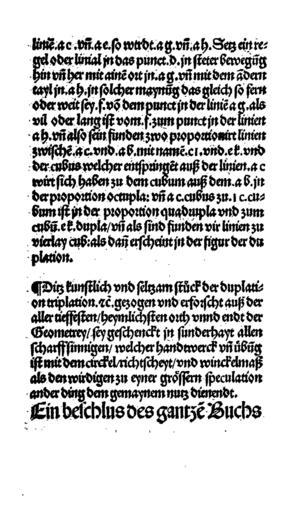 liniē. a c . vñ. a e. so wirdt. a g. vñ. a h. Setz ein re⸗
gel oder linial in das punct. d. in steter bewegūg
hin vñ her mit ainē ort in. a g. vñ mit dem ādern
tayl in. a h. in solcher maynūg das gleich so fern
oder weit sey. f. vō dem punct in der liniē a g. als
vil oder lang ist vom. f. zum punct in der linien
a h. vñ also sein funden zwo proportionirt linien
zwischē. a c. vnd. a b. mit namē. c i. vnd. e k. vnd
der cubus welcher entspringēt auß der linien. a c
wirt sich haben zu dem cubum auß dem. a b. in
der proportion octupla: vñ a c. cubus zu. i c. cu⸗
bum ist in der proportion quadrupla vnd zum
cubū. e k. dupla/ vñ als sind funden vir linien zu
vierlay cub: als dañ erscheint in der figur der du
plation.
¶Ditz kunstlich vnd seltzam stück der duplati⸗
on triplation. ꝛc. gezogen vnd erforscht auß der
aller tieffesten/ heymlichsten orth vnnd endt der
Geometrey/ sey geschenckt in sunderhayt allen
scharffsinnigen/ welcher handtwerck vñ übūg
ist mit dem circkel/ richtscheyt/ vnd winckelmaß
als den wirdigen zu eyner grössern speculation
ander ding dem gemaynem nutz dienendt.
Ein beschlus des gantzē Buchs